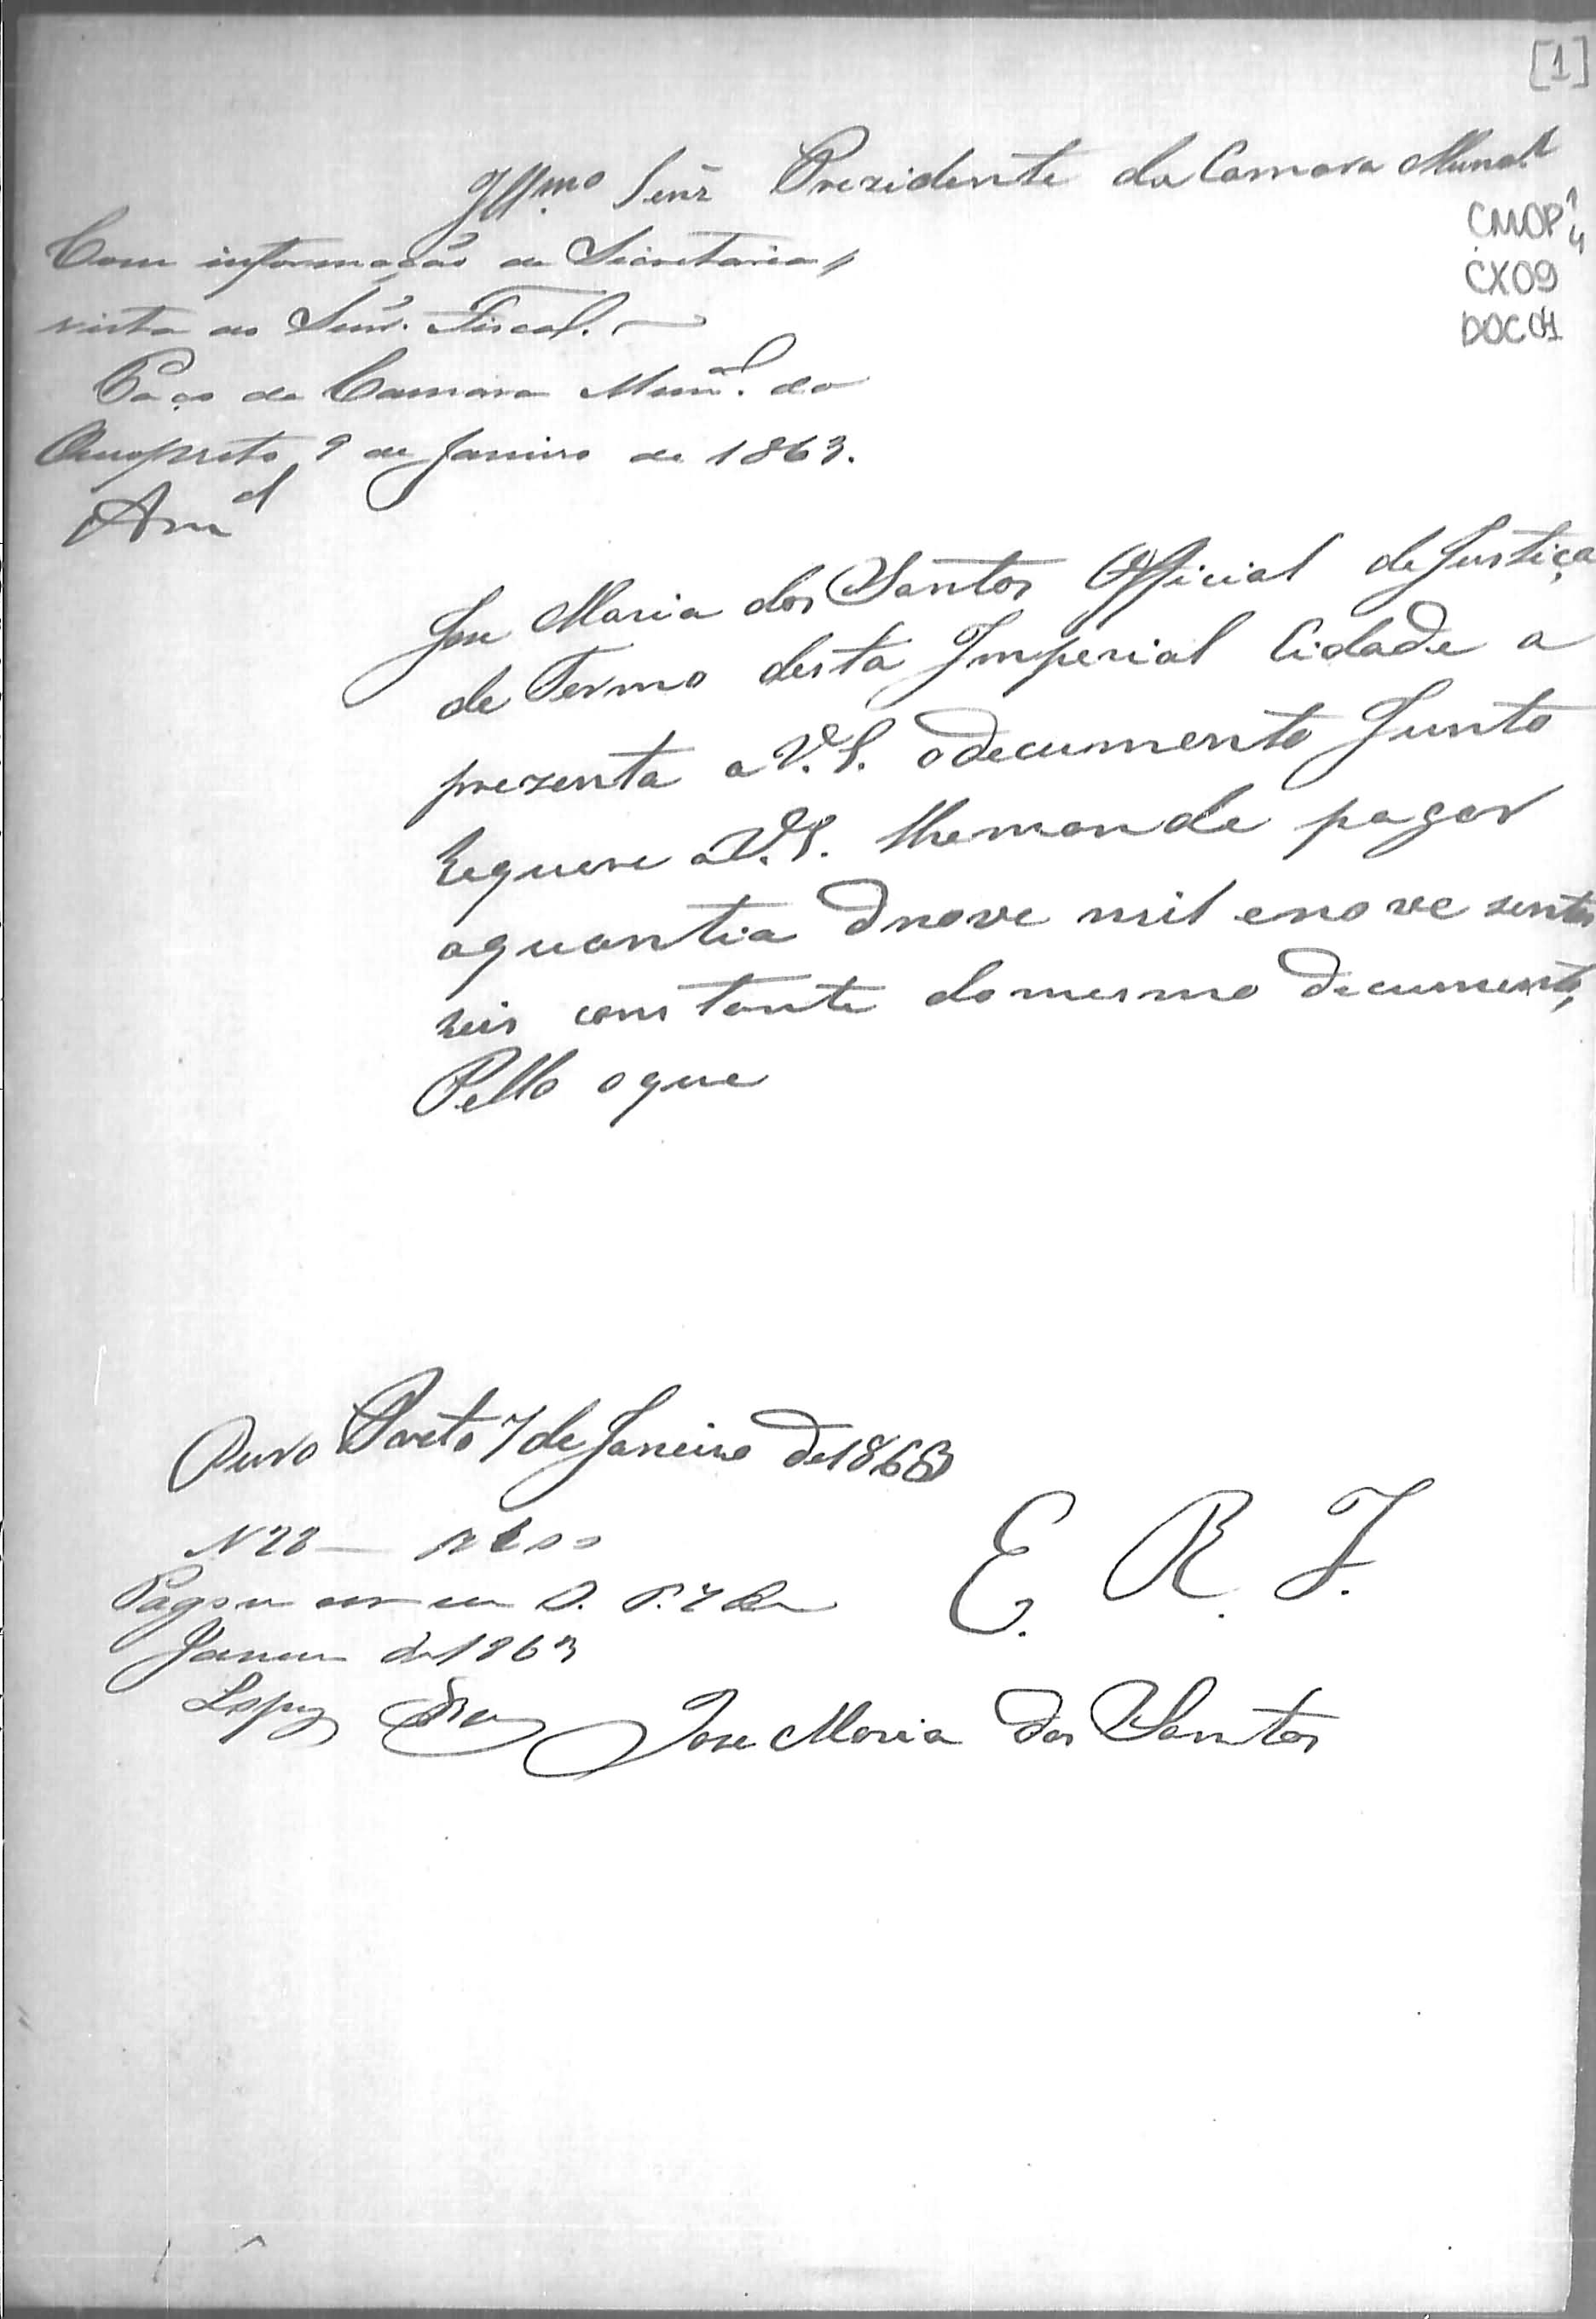 [1]
Ill.mo Senr Prezidente da Camara Munal
CMOP
CX09
DOC 01
Com informação da Secretaria,
vista ao Senr. Fiscal.
Paço da Camara Munal. do
Ouropreto, 9 de Janeiro de 1863.
Jose Maria dos Santos Official de Justiça
de Termo desta Imperial Cidade a
prezenta a V.S. odecumento Junto
Requere a V.S. lhemande pagar
aquantia de nove mil enove sentos
reis constante domesmo decumento,
Pello oque
Ouro Preto 7 de Janeiro de 1863
E. R. J.
N 28 — 200
Pagou
Janeiro de 1863
Lopes
Jose Maria dos Santos